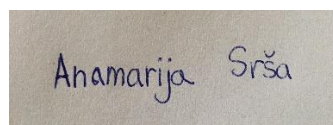 Anamarija Srša